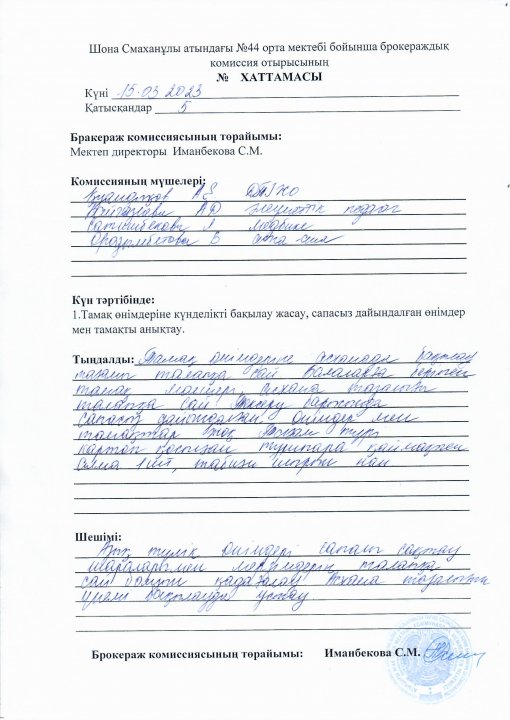 Шона Смаханұлы атындағы №44 орта мектебі бойынша брокераждық
комиссия отырысының
№ ХАТТАМАСЫ
Күні 15.03 2023
Қатысқандар 5
Бракераж комиссиясының төрайымы:
Мектеп директоры Иманбекова С.М.
Комиссияның мүшелері:
АӘ
АД әлеуметтік педагог
Сатыбеков А медбике
Оразымбетова Б ата-ана
Күн тәртібінде:
1.Тамақ өнімдеріне күнделікті бақылау жасау, сапасыз дайындалған өнімдер
мен тамақты анықтау.
Тыңдалды: Тамақ өнімдеріне асханадан бақылау
талапқа сай балаларға берілген
тамақ мәзірі, асхана тазалығы
талапқа сай
Сапасыз өнімдер мен
тамақтар жоқ
картоп
алма 1 шт, табиғи шырын нан
Шешімі:
Азық түлік өнімдері сапалы сақтау
шараларымен мерзімдерін талапқа
сай болуын қадағалау Асхана тазалығын
үнемі бақылауда ұстау
Брокераж комиссиясының төрайымы: Иманбекова С.М.